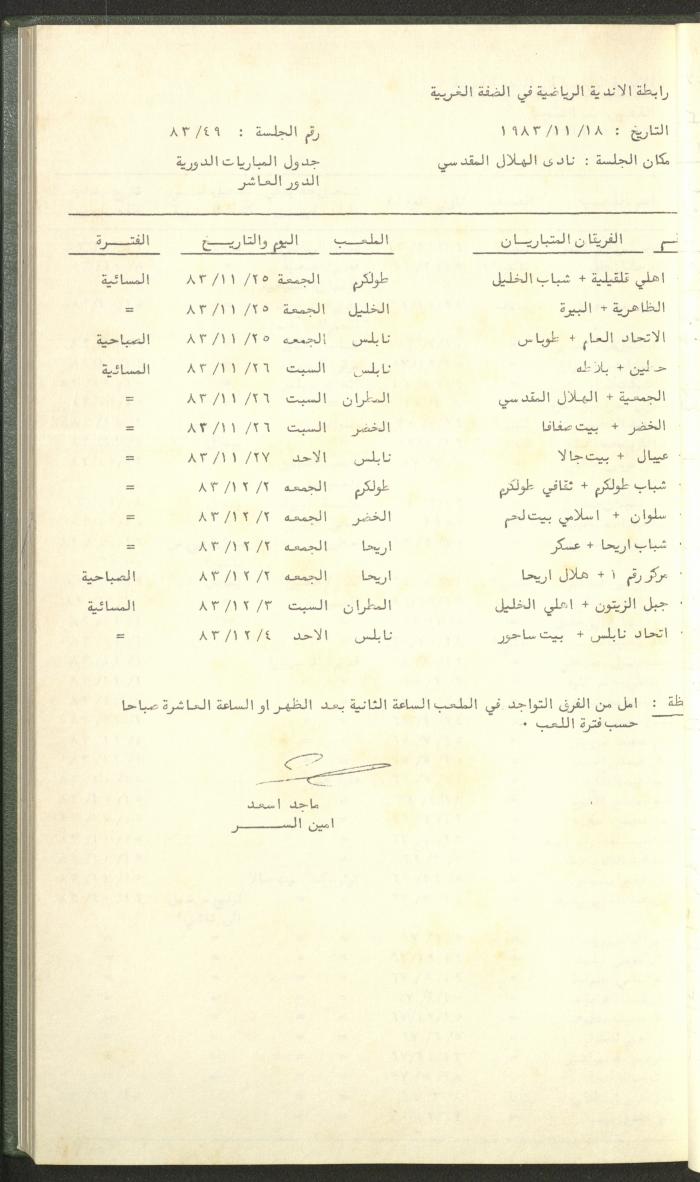 رابطة الاندية الرياضية في الضفة الغربية
التاريخ : ١٩٨٣/١١/١٨ رقم الجلسة : ٨٣/٤٩
مكان الجلسة : نادى الهلال المقدسي جدول المباريات الدورية
الدور العاشر
الفريقان المتباريان الملعب اليوم والتاريخ الفترة
اهلي قلقيلية + شباب الخليل طولكرم الجمعة ٨٣/١١/٢٥ المسائية
الظاهرية + البيرة الخليل الجمعة ٨٣/١١/٢٥ =
الاتحاد العام + طوباس نابلس الجمعه ٨٣/١١/٢٥ الصباحية
+ بلاطه نابلس السبت ٨٣/١١/٢٦ المسائية
الجمعية + الهلال المقدسي المطران السبت ٨٣/١١/٢٦ =
الخضر + بيت صفافا الخضر السبت ٨٣/١١/٢٦ =
عيبال + بيت جالا نابلس الاحد ٨٣/١١/٢٧ =
شباب طولكرم + ثقافي طولكرم طولكرم الجمعه ٨٣/١٢/٢ =
سلوان + اسلامي بيت لحم الخضر الجمعه ٨٣/١٢/٢ =
شباب اريحا + عسكر اريحا الجمعه ٨٣/١٢/٢ =
مركز رقم ١ + هلال اريحا اريحا الجمعه ٨٣/١٢/٢ الصباحية
جبل الزيتون + اهلي الخليل المطران السبت ٨٣/١٢/٣ المسائية
اتحاد نابلس + بيت ساحور نابلس الاحد ٨٣/١٢/٤ =
ظة : امل من الفرق التواجد في الملعب الساعة الثانية بعد الظهر او الساعة العاشرة صباحا
حسب فترة اللعب .
ماجد اسعد
امين الســـر